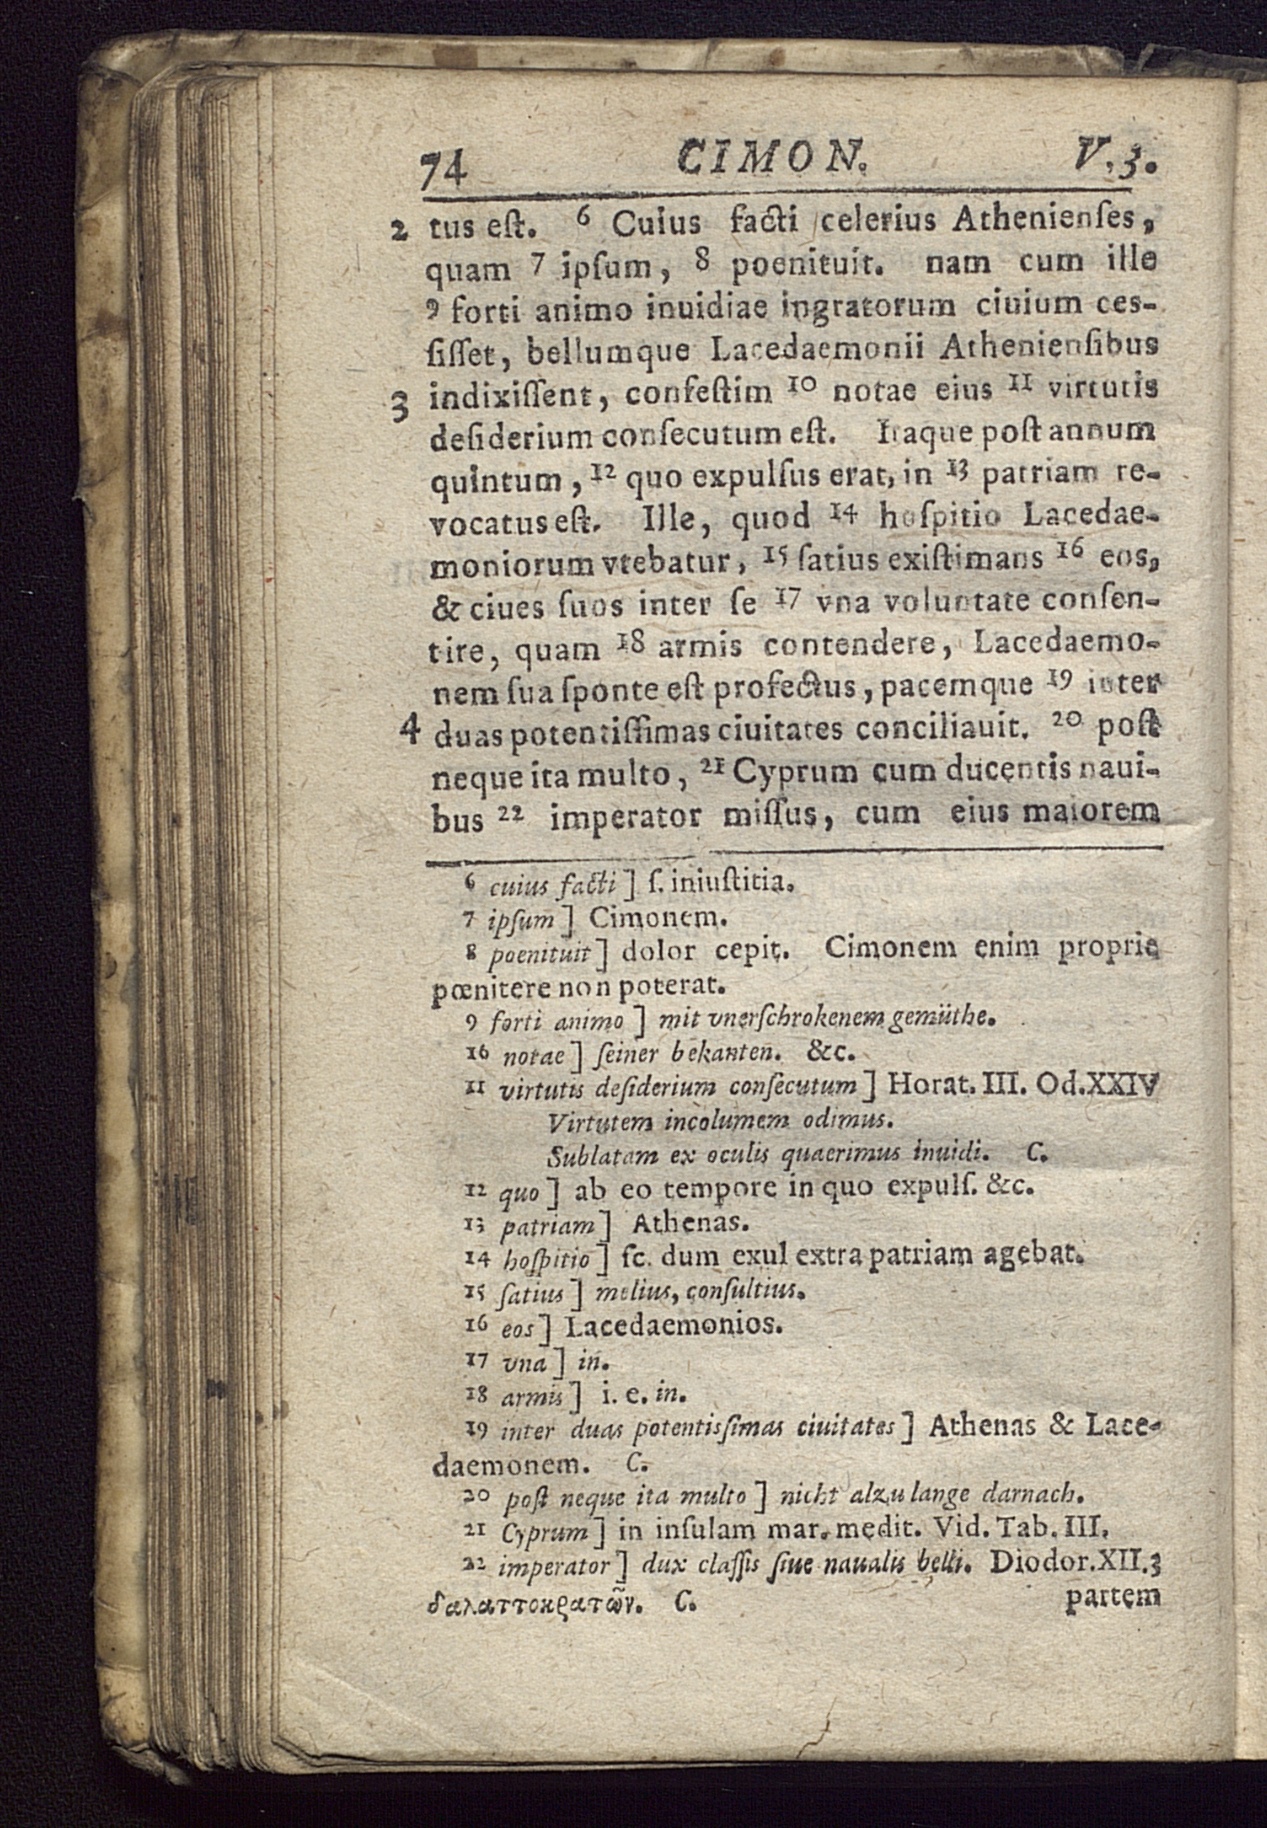 74 CIMON. V.3.
2 tus eſt. 6 Cuius facti celerius Athenienſes,
quam 7 ipſum, 8 poenituit. nam cum ille
9 forti animo inuidiae ingratorum ciuium ceſ-
ſiſſet, bellumque Lacedaemonii Athenienſibus
3 indixiſſent, confeſtim 10 notae eius 11 virtutis
deſiderium conſecutum eſt. Itaque poſt annum
quintum, 12 quo expulſus erat, in 13 patriam re-
vocatus eſt. Ille, quod 14 hoſpitio Lacedae-
moniorum vtebatur, 15 ſatius exiſtimans 16 eos,
& ciues ſuos inter ſe 17 vna voluntate conſen-
tire, quam 18 armis contendere, Lacedaemo-
nem ſua ſponte eſt profectus, pacemque 19 inter
4 duas potentiſſimas ciuitates conciliauit. 20 poſt
neque ita multo, 21 Cyprum cum ducentis naui-
bus 22 imperator miſſus, cum eius maiorem
6 cuius facti] ſ. iniuſtitia.
7 ipſum] Cimonem.
8 poenituit] dolor cepit. Cimonem enim proprie
pœnitere non poterat.
9 forti animo] mit vnerſchrokenem gemüthe.
16 notae] ſeiner bekanten. &c.
11 virtutis deſiderium conſecutum] Horat. III. Od. XXIV
Virtutem incolumem odimus.
Sublatam ex oculis quaerimus inuidi. C.
12 quo] ab eo tempore in quo expulſ. &c.
13 patriam] Athenas.
14 hoſpitio] ſc. dum exul extra patriam agebat.
15 ſatius] melius, conſultius.
16 eos] Lacedaemonios.
17 vna] in.
18 armis] i. e. in.
19 inter duas potentisſimas ciuitates] Athenas & Lace-
daemonem. C.
20 poſt neque ita multo] nicht alzu lange darnach.
21 Cyprum] in inſulam mar. medit. Vid. Tab. III.
22 imperator] dux claſſis ſiue naualis belli. Diodor. XII. 3
δαλαττοκρατῶν. C. partem